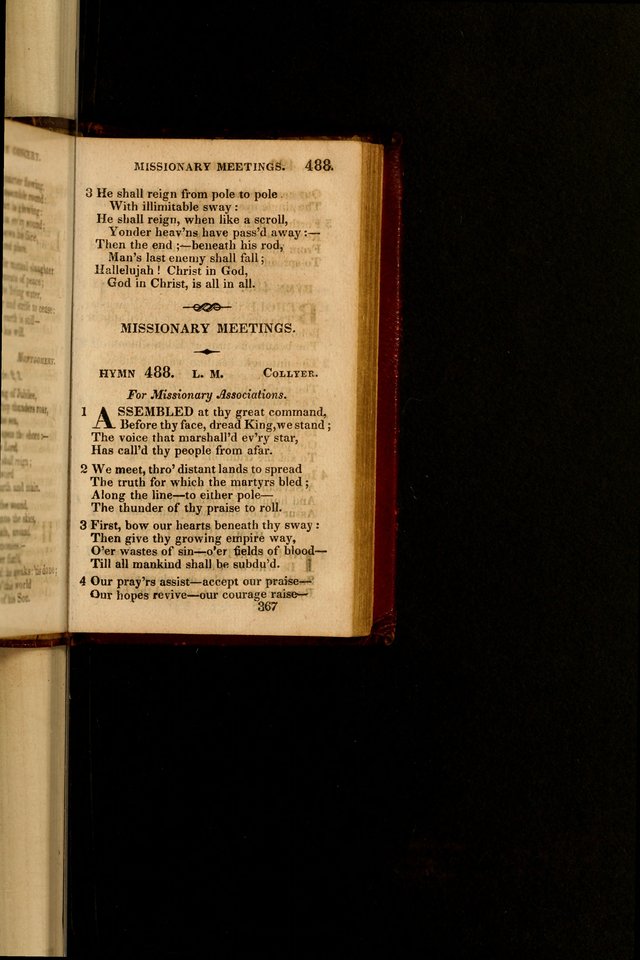 MISSIONARY MEETINGS. 488.
3 He shall reign from pole to pole
With illimitable sway :
He shall reign, when like a scroll,
Yonder heav'ns have pass'd away :—
Then the end ;—beneath his rod,
Man's last enemy shall fall ;
Hallelujah ! Christ in God,
God in Christ, is all in all.
MISSIONARY MEETINGS.
HYMN 488. L. M. COLLYER.
For Missionary Associations.
1 ASSEMBLED at thy great command,
Before thy face, dread King, we stand ;
The voice that marshall'd ev'ry star,
Has call'd thy people from afar.
2 We meet, thro' distant lands to spread
The truth for which the martyrs bled ;
Along the line—to either pole—
The thunder of thy praise to roll.
3 First, bow our hearts beneath thy sway :
Then give thy growing empire way,
O'er wastes of sin—o'er fields of blood—
Till all mankind shall be subdu'd.
4 Our pray'rs assist—accept our praise—
Our hopes revive—our courage raise—
367